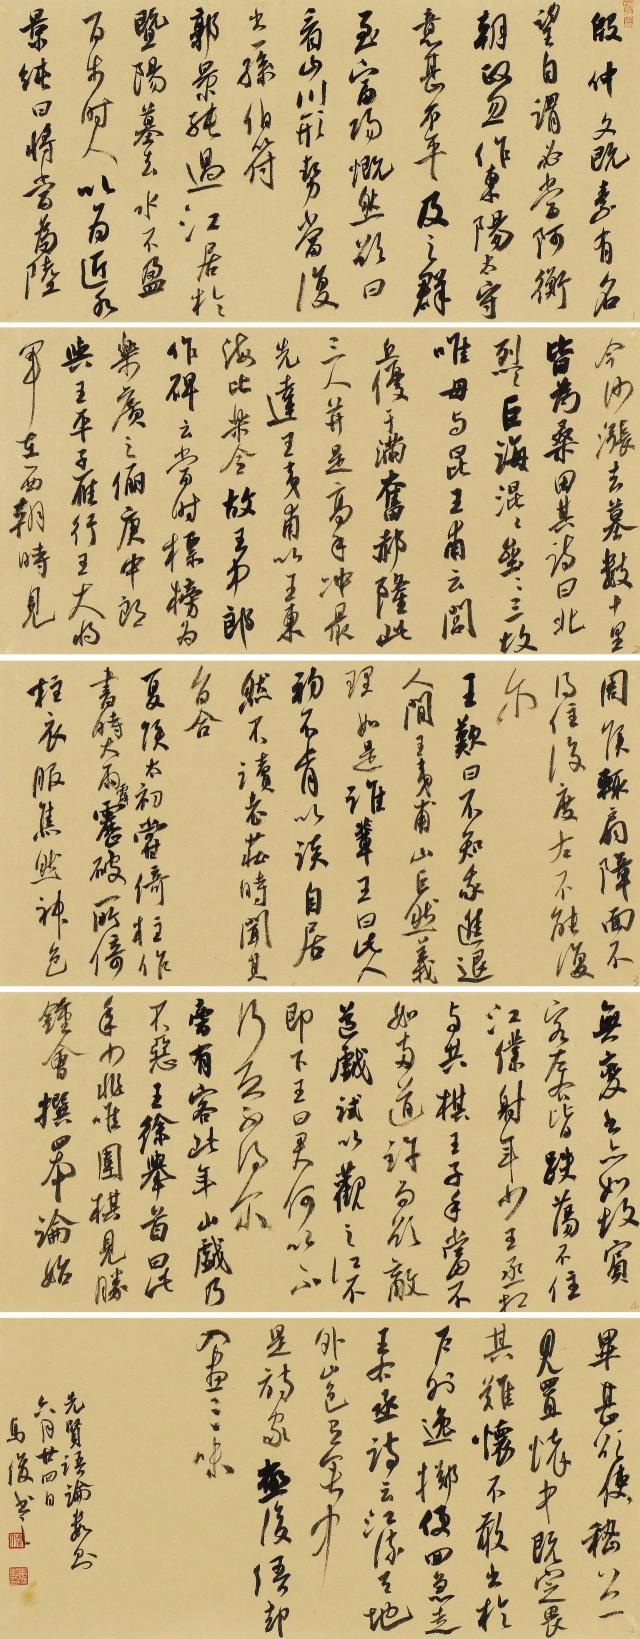 殷仲文既素有名
望自謂必當阿衡
朝政忽作東陽太守
意甚不平及之群
至富陽慨然歎曰
看山川形勢當復
出一孫伯符
郭景純過江居於
暨陽墓去水不盈
百步時人以為近水
景純曰將當為陸
今沙漲去墓數十里
皆為桑田其詩曰北
烈〻巨海混〻壘〻三坟
唯母与昆王甫云閭
丘優于滿奮郝隆此
三人并是高才冲最
先達王夷甫以王東
海比樂令故王中郎
作碑云當時標榜為
樂廣之儷庾中郎
與王平子雁行王大將
軍在西朝時見
周侯輒扇障面不
得住後度左不能復
尔
王歎曰不知我進退
人問王夷甫山巨然義
理如是誰輩王曰此人
初不肯以談自居
然不讀老莊時聞其
旨合
夏侯太初嘗倚柱作
書時大雨霹靂破所倚
柱衣服焦然神色
無變書亦如故賓
客左右皆跌蕩不住
江僕射年少王丞相
与共棋王子手當不
如兩道許而欲敵
道戲試以觀之江不
即下王曰君何以不
行恐不得尔
旁有客此年少戲乃
不惡王徐舉首曰此
年少非唯圍棋見勝
鍾會撰四本論始
畢甚欲使嵇公一
見置懷中既定畏
其難懷不敢出於
戶外遙擲便回急走
王右丞詩云江流天地
外山色有無中
是詩家極後語却
入畫三昧
先賢語論數則
六月廿四日
馬俊書